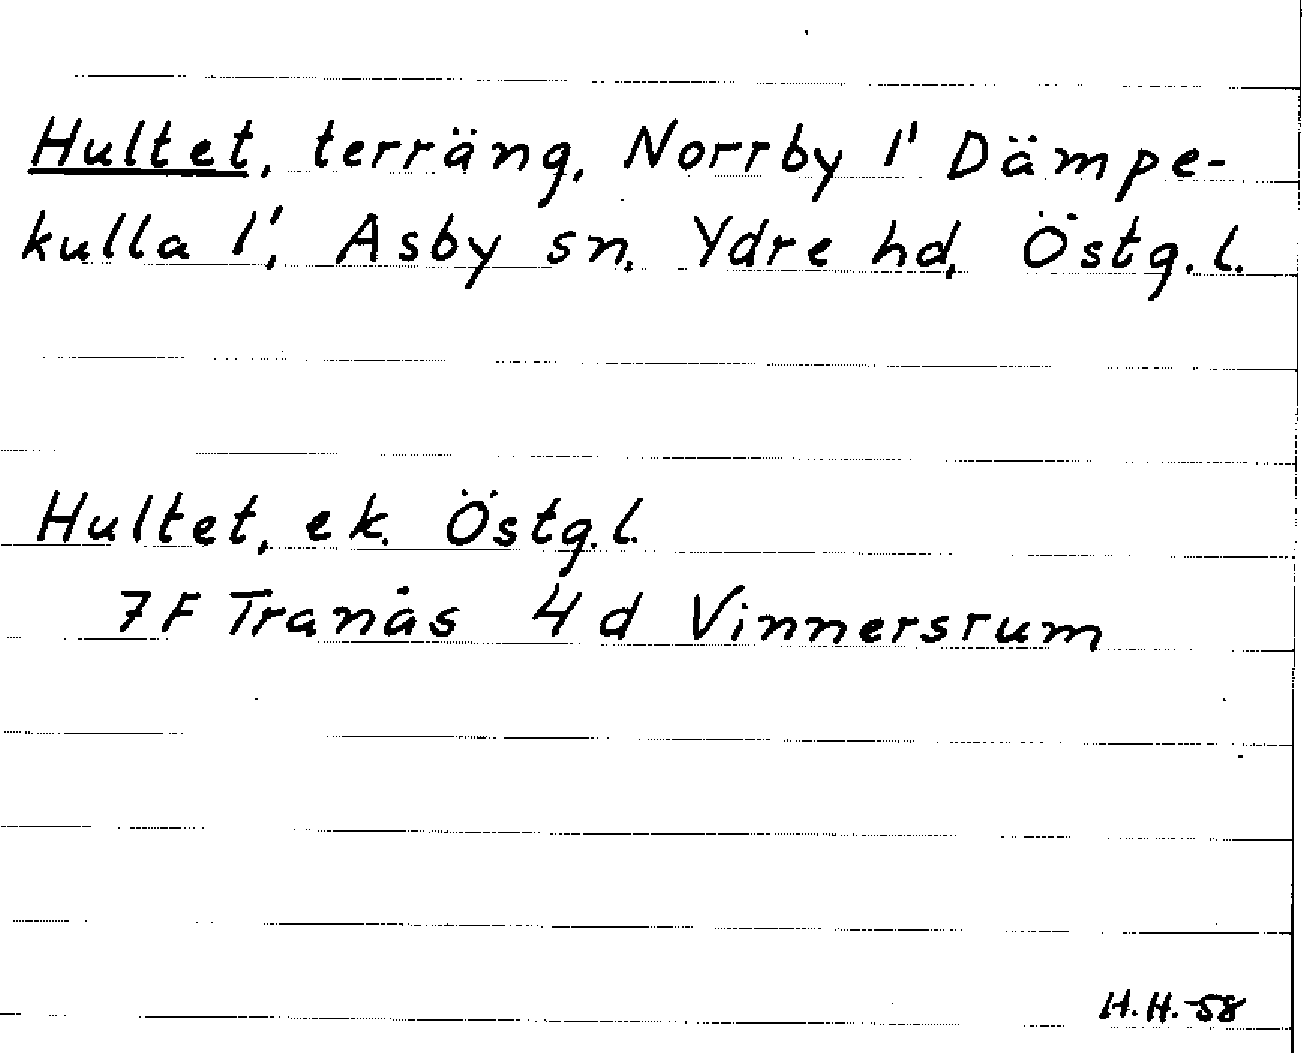 Hultet, terräng, Norrby 1' Dämpe-
kulla 1', Asby sn. Ydre hd, Östg.l.
Hultet, ek. Östg.l.
7F Tranås 4d Vinnersrum
H.H.-58